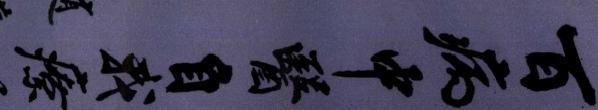 百病中醫自我療